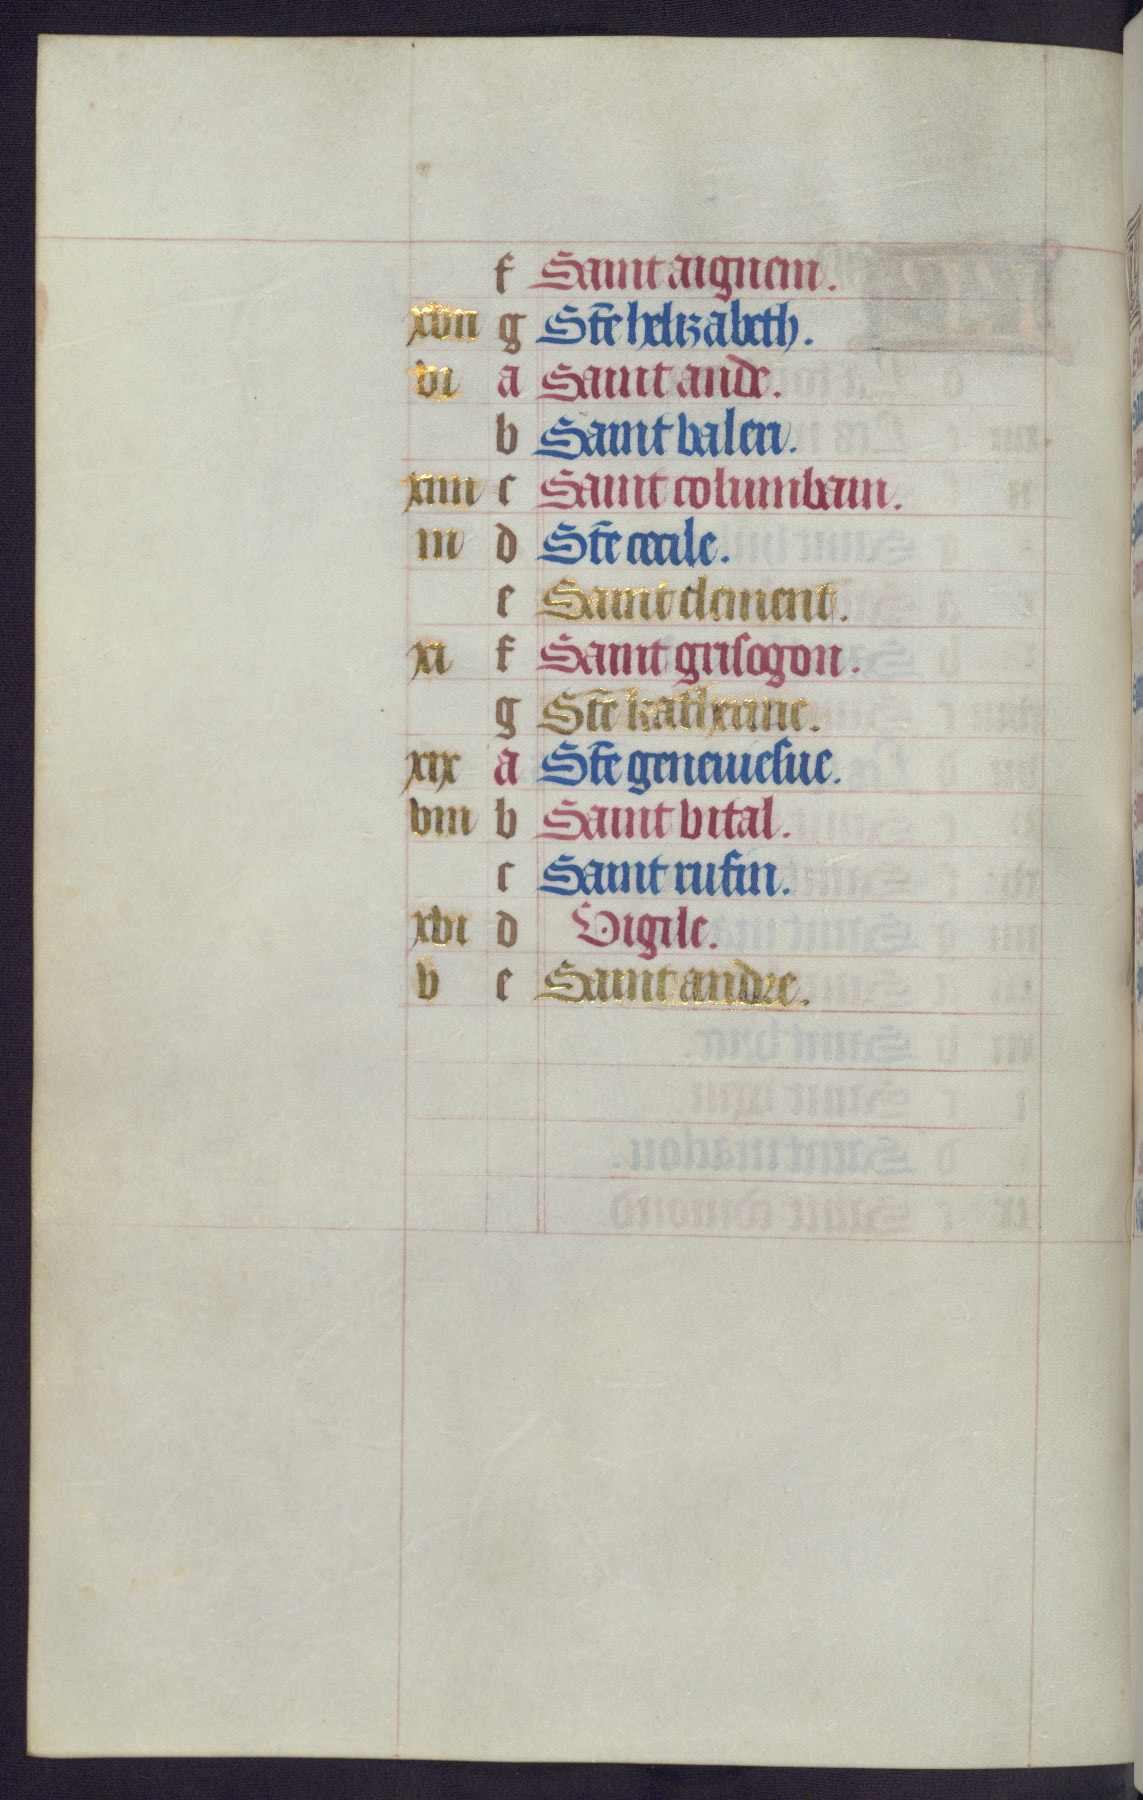 f Saint aignen.
xvii g Ste helizabeth.
vi a Saint ande.
b Saint valeri.
xiiii c Saint columbain.
iii d Ste cecile.
e Saint clement.
xi f Saint grisogon.
g Ste katherine.
xix a Ste geneuiefue.
viii b Saint vital.
c Saint rufin.
xvi d Vigile.
v e Saint andre.